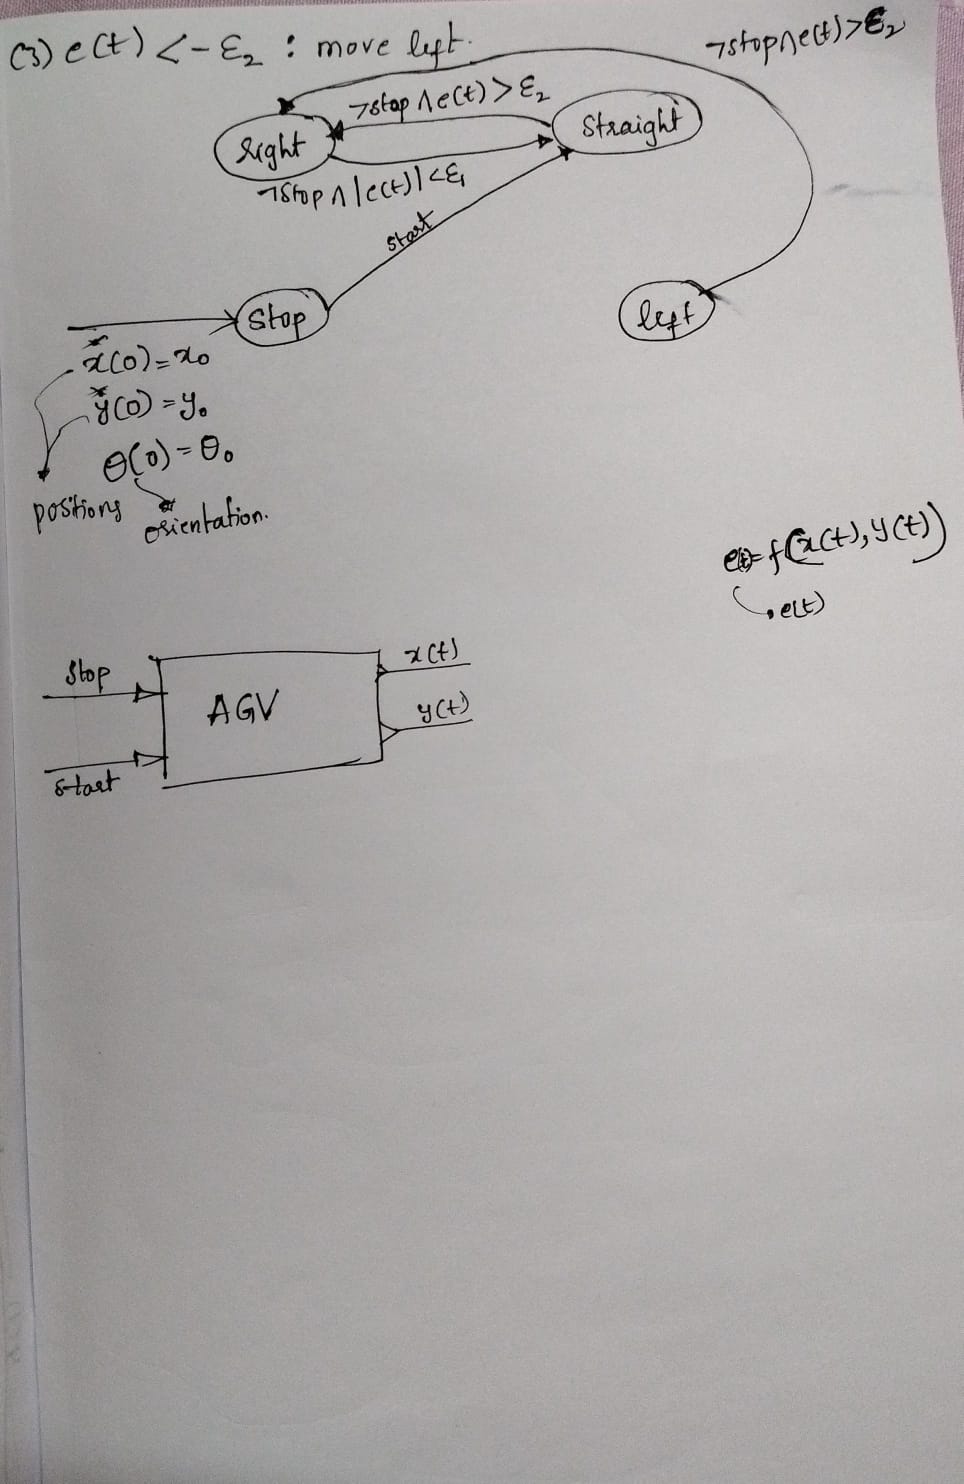 (3) e(t) < -ε₂ : move left.
¬stop∧e(t)>ε₂
¬stop ∧ e(t) > ε₂
Right
Straight
¬stop ∧ |e(t)| < ε₁
start
Stop
left
x(0) = x₀
y(0) = y₀
θ(0) = θ₀
positions
orientation.
e(t) = f(x(t), y(t))
e(t)
Stop
x(t)
AGV
y(t)
Start